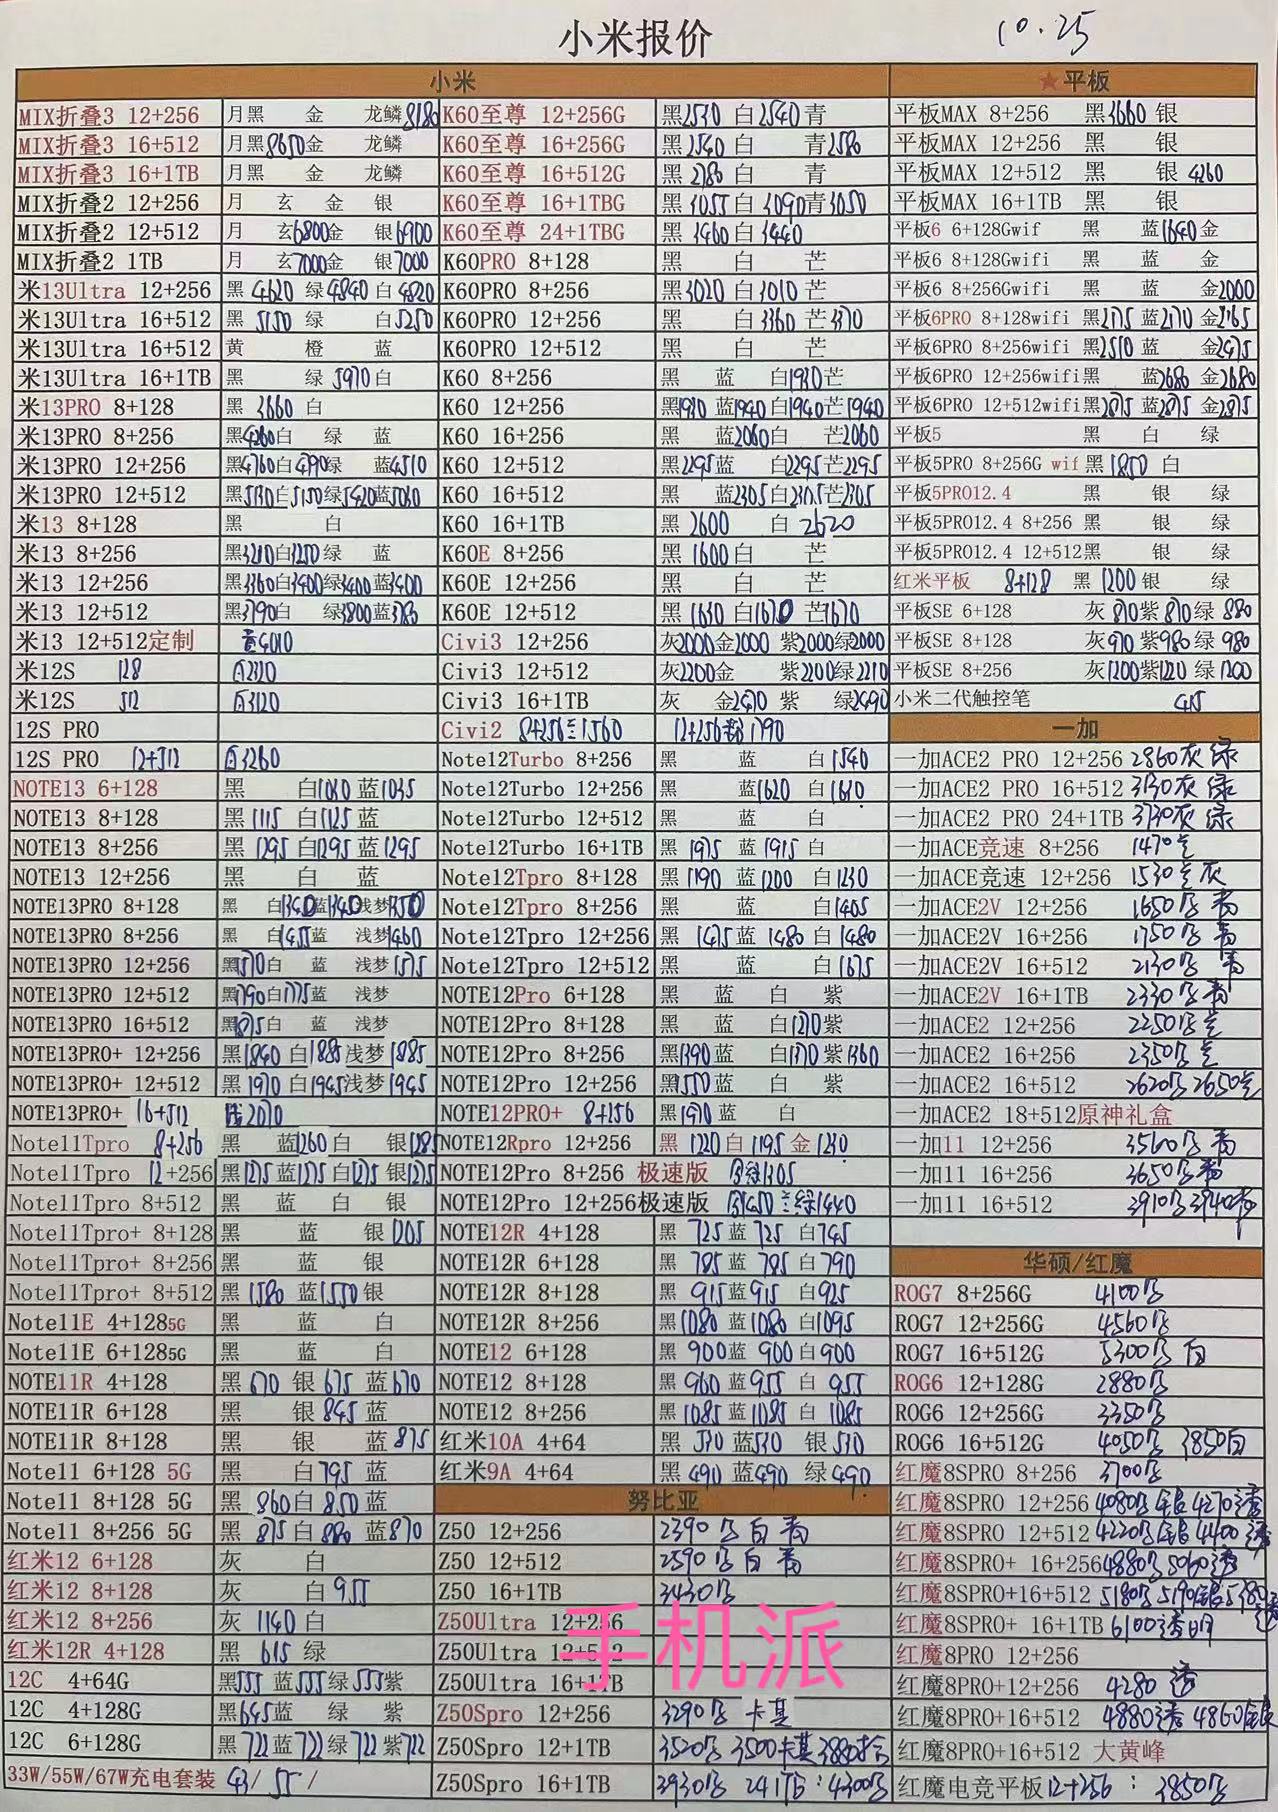 小米报价 10.25
小米
MIX折叠3 12+256 月黑 金 龙鳞8180
MIX折叠3 16+512 月黑8650金 龙鳞
MIX折叠3 16+1TB 月黑 金 龙鳞
MIX折叠2 12+256 月 玄 金 银
MIX折叠2 12+512 月 玄6800金 银6900
MIX折叠2 1TB 月 玄7000金 银7000
米13Ultra 12+256 黑 4620 绿 4840 白 4820
米13Ultra 16+512 黑 5150 绿 白5250
米13Ultra 16+512 黄 橙 蓝
米13Ultra 16+1TB 黑 绿 5970白
米13PRO 8+128 黑 3660 白
米13PRO 8+256 黑4260白 绿 蓝
米13PRO 12+256 黑4760白4790绿 蓝4510
米13PRO 12+512 黑5130白5150绿5420蓝5060
米13 8+128 黑 白
米13 8+256 黑3210白3250绿 蓝
米13 12+256 黑3360白3400绿3400蓝3400
米13 12+512 黑3790白 绿3800蓝3780
米13 12+512定制
米12S 128 白2320
米12S 512 白3120
12S PRO
12S PRO 12+512 白3260
NOTE13 6+128 黑 白1030 蓝1035
NOTE13 8+128 黑 1115 白1125 蓝
NOTE13 8+256 黑 1295 白1295 蓝1295
NOTE13 12+256 黑 白 蓝
NOTE13PRO 8+128 黑 白1340蓝1345浅梦1350
NOTE13PRO 8+256 黑 白1455蓝 浅梦1460
NOTE13PRO 12+256 黑1570白 蓝 浅梦1575
NOTE13PRO 12+512 黑1790白1775蓝 浅梦
NOTE13PRO 16+512 黑1875白 蓝 浅梦
NOTE13PRO+ 12+256 黑1840 白1885浅梦1885
NOTE13PRO+ 12+512 黑 1970 白1945浅梦1945
NOTE13PRO+ 16+512 浅2070
Note11Tpro 8+256 黑 蓝1260白 银1285
Note11Tpro 12+256 黑1275蓝1275白1275银1275
Note11Tpro 8+512 黑 蓝 白 银
Note11Tpro+ 8+128 黑 蓝 银1205
Note11Tpro+ 8+256 黑 蓝 银
Note11Tpro+ 8+512 黑 1580 蓝1550银
Note11E 4+1285G 黑 蓝 白
Note11E 6+1285G 黑 蓝 白
NOTE11R 4+128 黑 670 银 675 蓝670
NOTE11R 6+128 黑 银 845 蓝
NOTE11R 8+128 黑 银 蓝 875
Note11 6+128 5G 黑 白795 蓝
Note11 8+128 5G 黑 860白 850蓝
Note11 8+256 5G 黑 875白 880 蓝870
红米12 6+128 灰 白
红米12 8+128 灰 白955
红米12 8+256 灰 1140 白
红米12R 4+128 黑 615 绿
12C 4+64G 黑555 蓝555绿555紫
12C 4+128G 黑645蓝 绿 紫
12C 6+128G 黑722蓝722绿722紫722
33W/55W/67W充电套装 43/ 55 /
K60至尊 12+256G 黑2530 白2540青
K60至尊 16+256G 黑2540白 青2580
K60至尊 16+512G 黑 2780 白 青
K60至尊 16+1TBG 黑 3055白3090青3050
K60至尊 24+1TBG 黑 3460白3440
K60PRO 8+128 黑 白 芒
K60PRO 8+256 黑3020白3010 芒
K60PRO 12+256 黑 白3360 芒3370
K60PRO 12+512 黑 白 芒
K60 8+256 黑 蓝 白1930芒
K60 12+256 黑1930蓝1940白1940芒1940
K60 16+256 黑 蓝2060白 芒2060
K60 12+512 黑2295蓝 白2295芒2295
K60 16+512 黑 蓝2305白2305芒2305
K60 16+1TB 黑 2600 白 2620
K60E 8+256 黑 1600 白 芒
K60E 12+256 黑 白 芒
K60E 12+512 黑 1650 白1670 芒1670
Civi3 12+256 灰2000金2000 紫2000绿2000
Civi3 12+512 灰2200金 紫2200绿2210
Civi3 16+1TB 灰 金2470 紫 绿2490
Civi2 8+256 1560 12+256粉1790
Note12Turbo 8+256 黑 蓝 白1540
Note12Turbo 12+256 黑 蓝1620 白1610
Note12Turbo 12+512 黑 蓝 白
Note12Turbo 16+1TB 黑 1975 蓝1915 白
Note12Tpro 8+128 黑1190 蓝1200 白1230
Note12Tpro 8+256 黑 蓝 白1405
Note12Tpro 12+256 黑 1475 蓝 1480 白1480
Note12Tpro 12+512 黑 蓝 白1675
NOTE12Pro 6+128 黑 蓝 白 紫
NOTE12Pro 8+128 黑 蓝 白1270紫
NOTE12Pro 8+256 黑1390蓝 白1370紫1360
NOTE12Pro 12+256 黑1550蓝 白 紫
NOTE12PRO+ 8+256 黑1970蓝 白
NOTE12Rpro 12+256 黑 1220白1195金1230
NOTE12Pro 8+256 极速版 1305
NOTE12Pro 12+256极速版 1450 绿1440
NOTE12R 4+128 黑 725蓝 725 白745
NOTE12R 6+128 黑 785蓝 785 白790
NOTE12R 8+128 黑 915蓝915 白925
NOTE12R 8+256 黑1080 蓝1080 白1095
NOTE12 6+128 黑 900蓝 900白900
NOTE12 8+128 黑 960 蓝955 白 955
NOTE12 8+256 黑1085蓝1085 白 1085
红米10A 4+64 黑 530蓝530 银530
红米9A 4+64 黑 490 蓝490 绿490
努比亚
Z50 12+256 2390 白 青
Z50 12+512 2590 白 青
Z50 16+1TB 3430
Z50Ultra 12+256
Z50Ultra 12+512
Z50Ultra 16+1TB
Z50Spro 12+256 3290 卡其
Z50Spro 12+1TB 3520 3500卡其3880
Z50Spro 16+1TB 3930 24 1TB:4300
★平板
平板MAX 8+256 黑3660银
平板MAX 12+256 黑 银
平板MAX 12+512 黑 银 4260
平板MAX 16+1TB 黑 银
平板6 6+128Gwif 黑 蓝1640金
平板6 8+128Gwifi 黑 蓝 金
平板6 8+256Gwifi 黑 蓝 金2000
平板6PRO 8+128wifi 黑2175 蓝2170 金2165
平板6PRO 8+256wifi 黑2510蓝 金2475
平板6PRO 12+256wifi黑 蓝2680 金2680
平板6PRO 12+512wifi黑2875蓝2875 金2875
平板5 黑 白 绿
平板5PRO 8+256G wif 黑1850 白
平板5PRO12.4 黑 银 绿
平板5PRO12.4 8+256 黑 银 绿
平板5PRO12.4 12+512黑 银 绿
红米平板 8+128 黑 1200 银 绿
平板SE 6+128 灰 870紫870绿 880
平板SE 8+128 灰970紫980绿 980
平板SE 8+256 灰1200紫1220 绿1200
小米二代触控笔 415
一加
一加ACE2 PRO 12+256 2860灰 绿
一加ACE2 PRO 16+512 3130灰 绿
一加ACE2 PRO 24+1TB 3730灰 绿
一加ACE竞速 8+256 1470
一加ACE竞速 12+256 1530 灰
一加ACE2V 12+256 1650 青
一加ACE2V 16+256 1750 青
一加ACE2V 16+512 2130 青
一加ACE2V 16+1TB 2330 青
一加ACE2 12+256 2250
一加ACE2 16+256 2350
一加ACE2 16+512 2620 2650
一加ACE2 18+512原神礼盒
一加11 12+256 3560 青
一加11 16+256 3650 青
一加11 16+512 3910 3940青
华硕/红魔
ROG7 8+256G 4100
ROG7 12+256G 4560
ROG7 16+512G 5300 白
ROG6 12+128G 2880
ROG6 12+256G 3350
ROG6 16+512G 4050 3850白
红魔8SPRO 8+256 3700
红魔8SPRO 12+256 4080 银 4270透
红魔8SPRO 12+512 4220 银 4400 透
红魔8SPRO+ 16+256 4880 5060透
红魔8SPRO+16+512 5180 5190银
红魔8SPRO+ 16+1TB 6100透明
红魔8PRO 12+256
红魔8PRO+12+256 4280 透
红魔8PRO+16+512 4880透 4860银
红魔8PRO+16+512 大黄蜂
红魔电竞平板12+256 : 3850
手机派